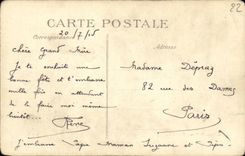 82
CARTE POSTALE
Correspondance
Adresse
20/7/05
Chère Grand Mère
Je te souhaite une
bonne fête et t'embrasse
mille fois en attendant
de le faire moi même
bientôt...
René
Madame Dépraz
82 rue des Dames
Paris
J'embrasse Papa Maman Suzanne et